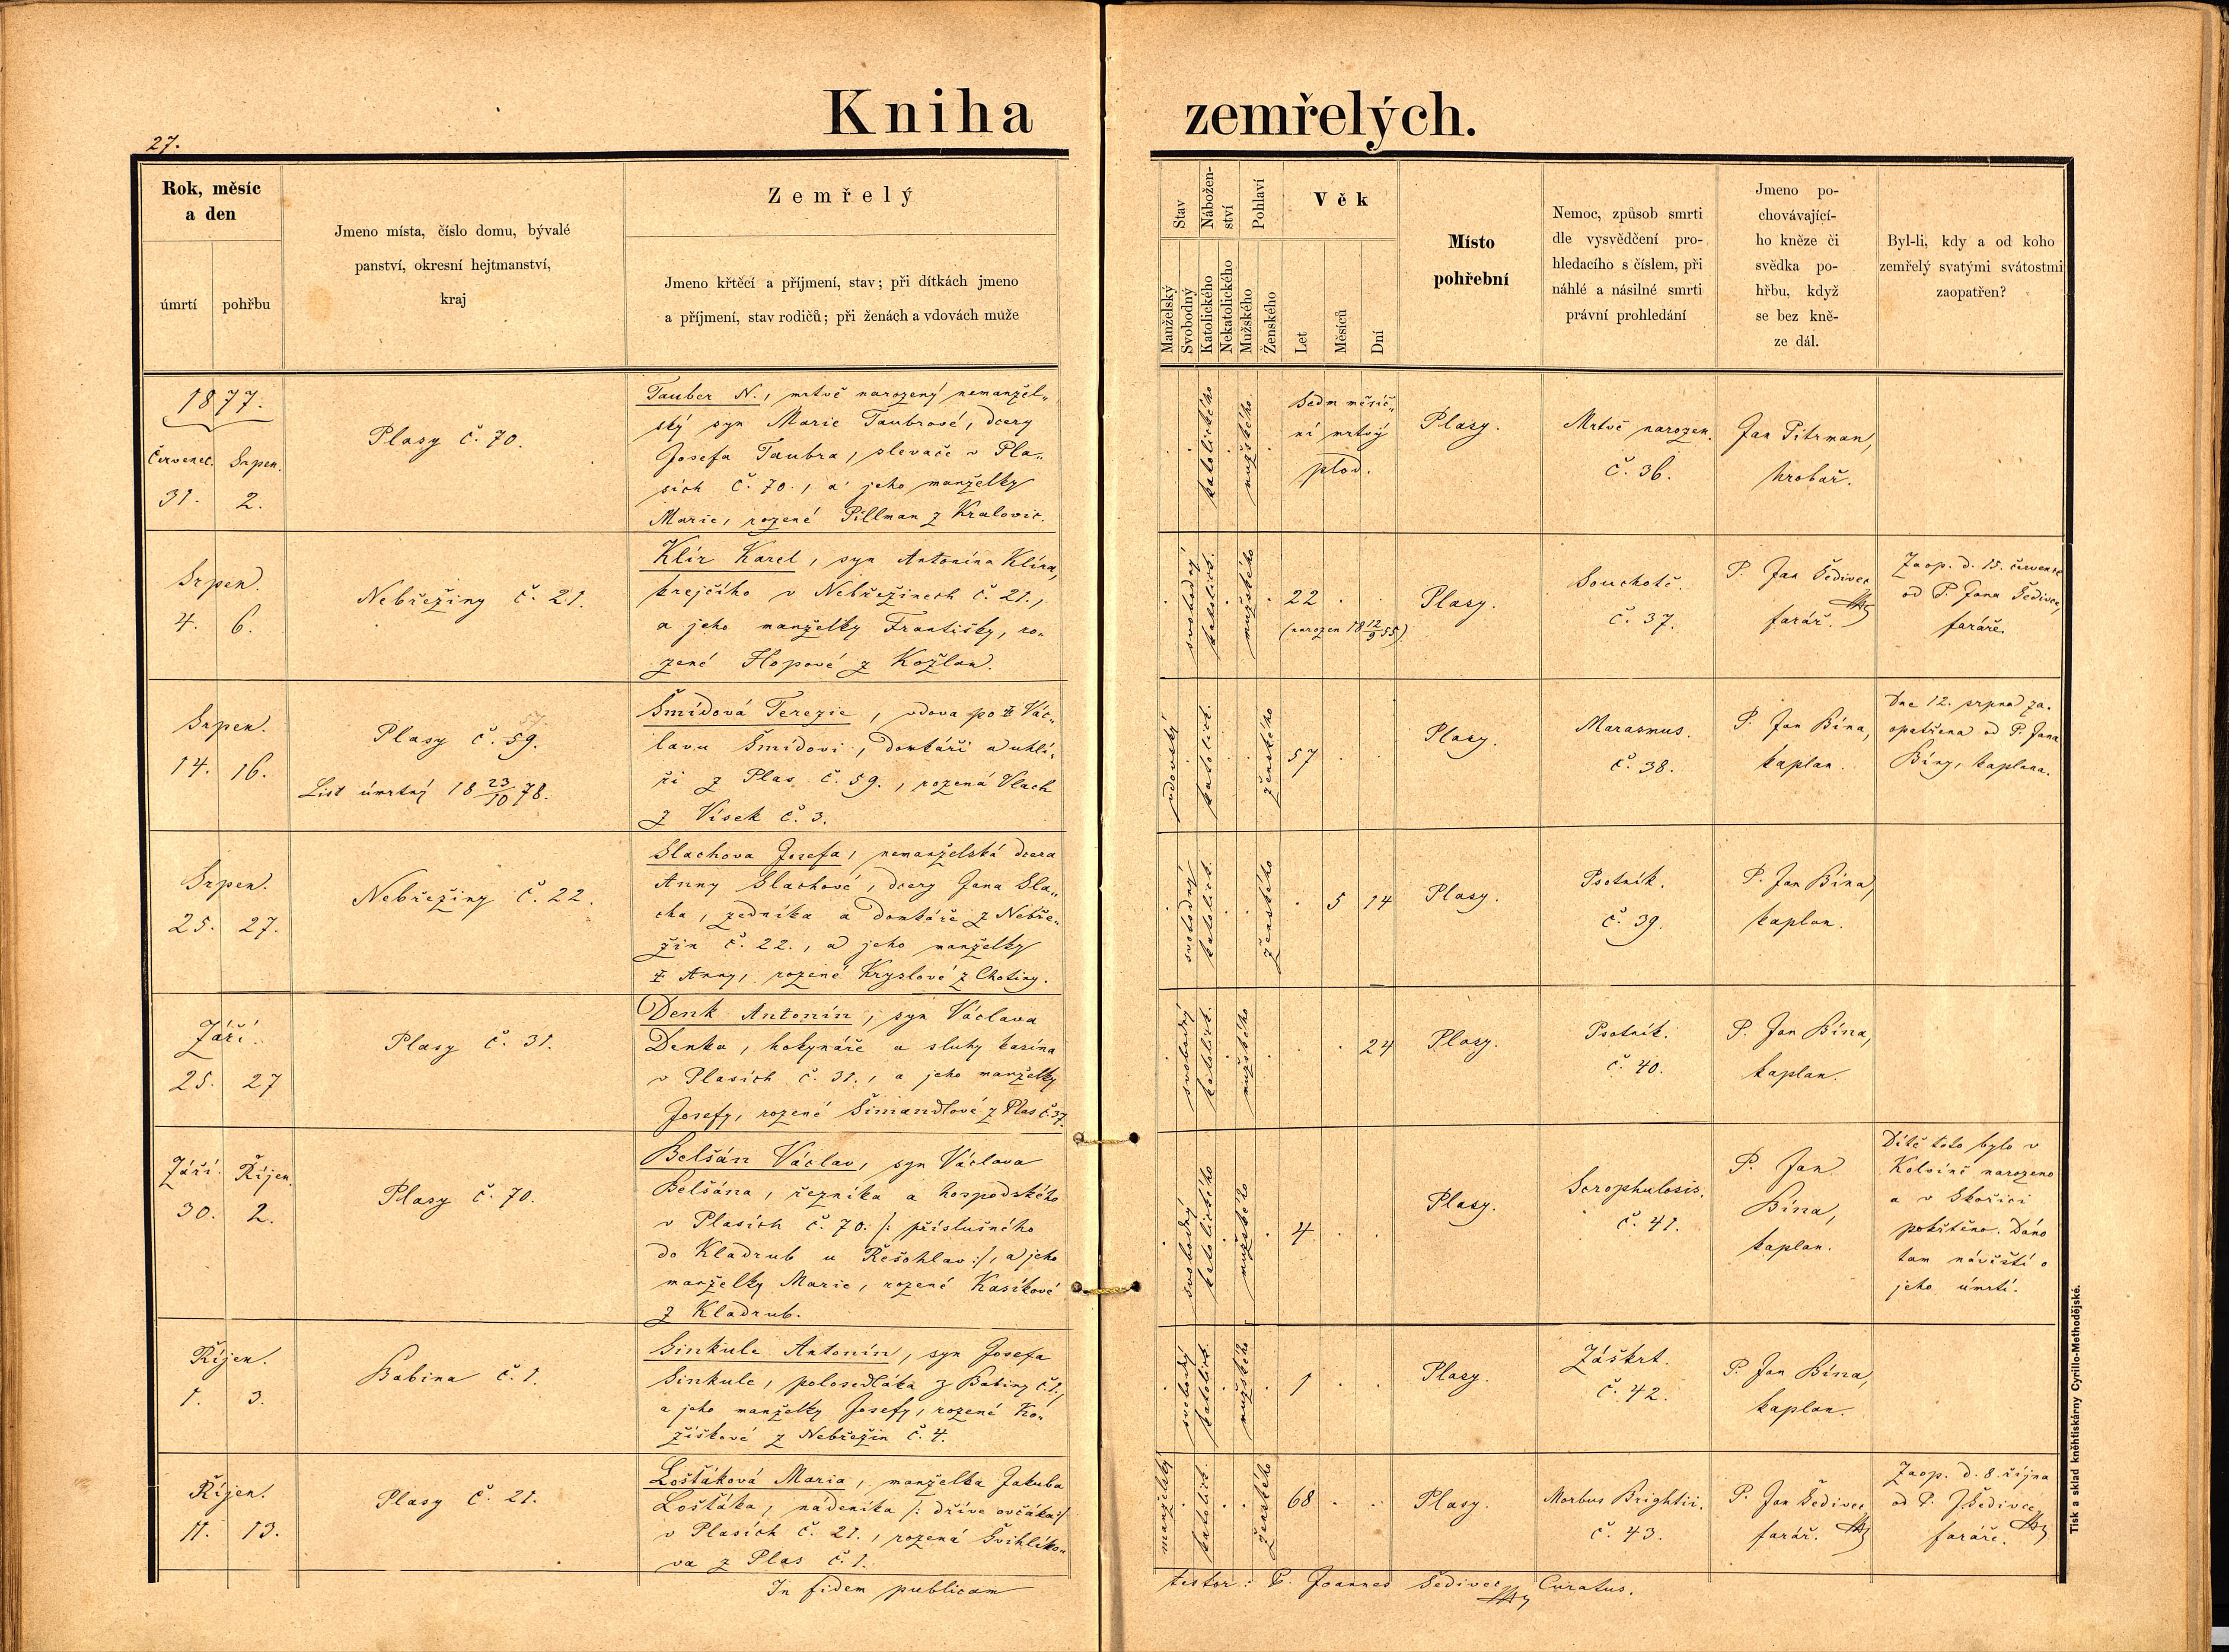 27.
Kniha zemřelých.
Rok, měsíc
a den
úmrtí
pohřbu
Jmeno místa, číslo domu, bývalé
panství, okresní hejtmanství,
kraj
Zemřelý
Jmeno křtěcí a příjmení, stav; při dítkách jmeno
a příjmení, stav rodičů; při ženách a vdovách muže
Stav
Manželský
Svobodný
Nábožen-
ství
Katolického
Nekatolického
Pohlaví
Mužského
Ženského
Věk
Let
Měsíců
Dní
Místo
pohřební
Nemoc, způsob smrti
dle vysvědčení pro-
hledacího s číslem, při
náhlé a násilné smrti
právní prohledání
Jmeno po-
chovávající-
ho kněze či
svědka po-
hřbu, když
se bez kně-
ze dál.
Byl-li, kdy a od koho
zemřelý svatými svátostmi
zaopatřen?
1877.
Červenec. Srpen.
31. 2.
Plasy č. 70.
Tauber N., mrtvě narozený nemanžel„
ský syn Marie Taubrové, dcery
Josefa Taubra, slevače v Pla„
sích č. 70., a jeho manželky
Marie, rozené Pillman z Kralovic.
katolického
mužského
Sedm měsíč„
ní mrtvý
plod.
Plasy.
Mrtvě narozen.
č. 36.
Jan Pitrman,
hrobař.
Srpen.
4. 6.
Nebřeziny č. 21.
Klír Karel, syn Antonína Klíra,
krejčího v Nebřezinech č. 21.,
a jeho manželky Františky, ro„
zené Hopové z Kožlan.
svobodný
katolick.
mužského
22
(narozen 18 12/9 55).
Plasy.
Souchotě.
č. 37.
P. Jan Šedivec
farář.
Zaop. d. 15. července
od P. Jana Šedivce,
faráře.
Srpen.
14. 16.
57.
Plasy č. 59.
List úmrtný 18 23/10 78.
Šmídová Terezie, vdova po ‡ Vác„
lavu Šmídovi, domkáři a uhlí„
ři z Plas č. 59., rozená Vlach
z Vísek č. 3.
vdovský
katolick.
ženského
57
Plasy.
Marasmus.
č. 38.
P. Jan Bína,
kaplan.
Dne 12. srpna za„
opatřena od P. Jana
Bíny, kaplana.
Srpen.
25. 27.
Nebřeziny č. 22.
Slachova Josefa, nemanželská dcera
Anny Slachové, dcery Jana Sla„
cha, zedníka a domkáře z Nebře„
zin č. 22., a jeho manželky
‡ Anny, rozené Kryslové z Chotiny.
svobodný
katolick.
ženského
5 14
Plasy.
Psotník.
č. 39.
P. Jan Bína,
kaplan.
Září.
25. 27
Plasy č. 31.
Denk Antonín, syn Václava
Denka, hokynáře a sluhy kasína
v Plasích č. 31., a jeho manželky
Josefy, rozené Šimandlové z Plas č. 37.
svobodný
katolick.
mužského
24
Plasy.
Psotník.
č. 40.
P. Jan Bína,
kaplan.
Září. Říjen.
30. 2.
Plasy č. 70.
Belšán Václav, syn Václava
Belšána, řezníka a hospodského
v Plasích č. 70. /: příslušného
do Kladrub u Řešohlav :/, a jeho
manželky Marie, rozené Kasíkové
z Kladrub.
svobodný
katolického
mužského
4
Plasy.
Scrophulosis.
č. 41.
P. Jan
Bína,
kaplan.
Dítě toto bylo v
Kolvíně narozeno
a v Skořici
pokřtěno. Dáno
tam návěští o
jeho úmrtí.
Říjen.
1. 3.
Babina č. 1.
Sinkule Antonín, syn Josefa
Sinkule, polosedláka z Babiny č. 1.,
a jeho manželky Josefy, rozené Ko„
žíškové z Nebřezin č. 4.
svobodný
katolick.
mužského
1
Plasy.
Záškrt.
č. 42.
P. Jan Bína,
kaplan.
Říjen.
11. 13.
Plasy č. 21.
Lošťáková Maria, manželka Jakuba
Lošťáka, nádeníka /: dříve ovčáka :/
v Plasích č. 21., rozená Švihlíko„
va z Plas č. 1.
manželský
katolick.
ženského
68
Plasy.
Morbus Brightii.
č. 43.
P. Jan Šedivec,
farář.
Zaop. d. 8. října
od P. J. Šedivce,
faráře.
In fidem publicam
testor: P. Joannes Šedivec, Curatus.
Tisk a sklad kněhtiskárny Cyrillo-Methodějské.